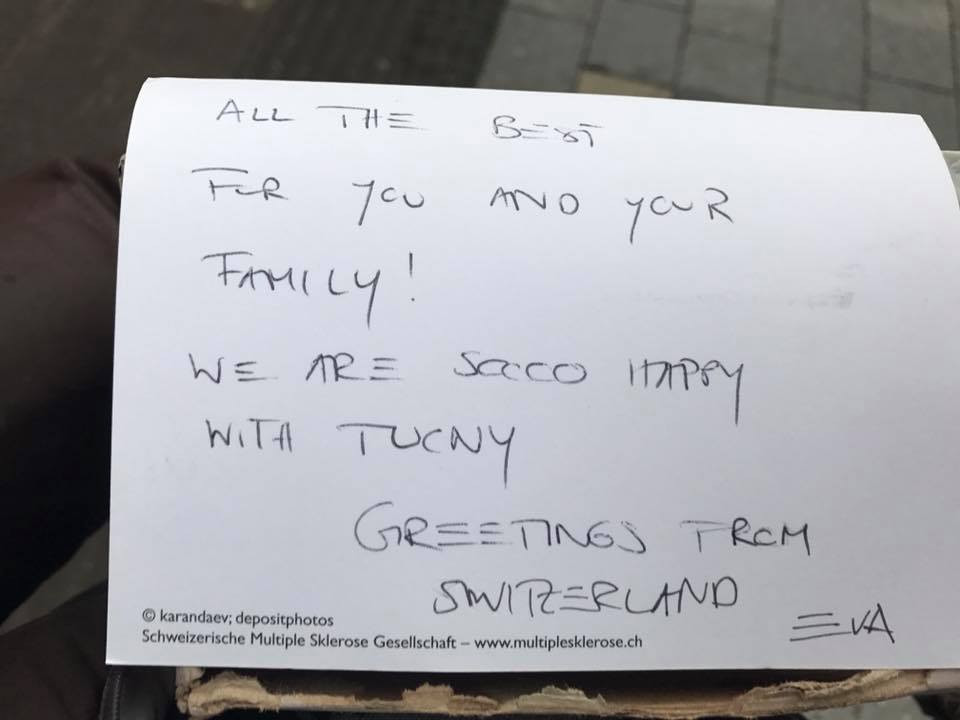 ALL THE BEST
FOR YOU AND YOUR
FAMILY!
WE ARE SOOOO HAPPY
WITH TUCNY
GREETINGS FROM
SWITZERLAND
EVA
© karandaev; depositphotos
Schweizerische Multiple Sklerose Gesellschaft – www.multiplesklerose.ch